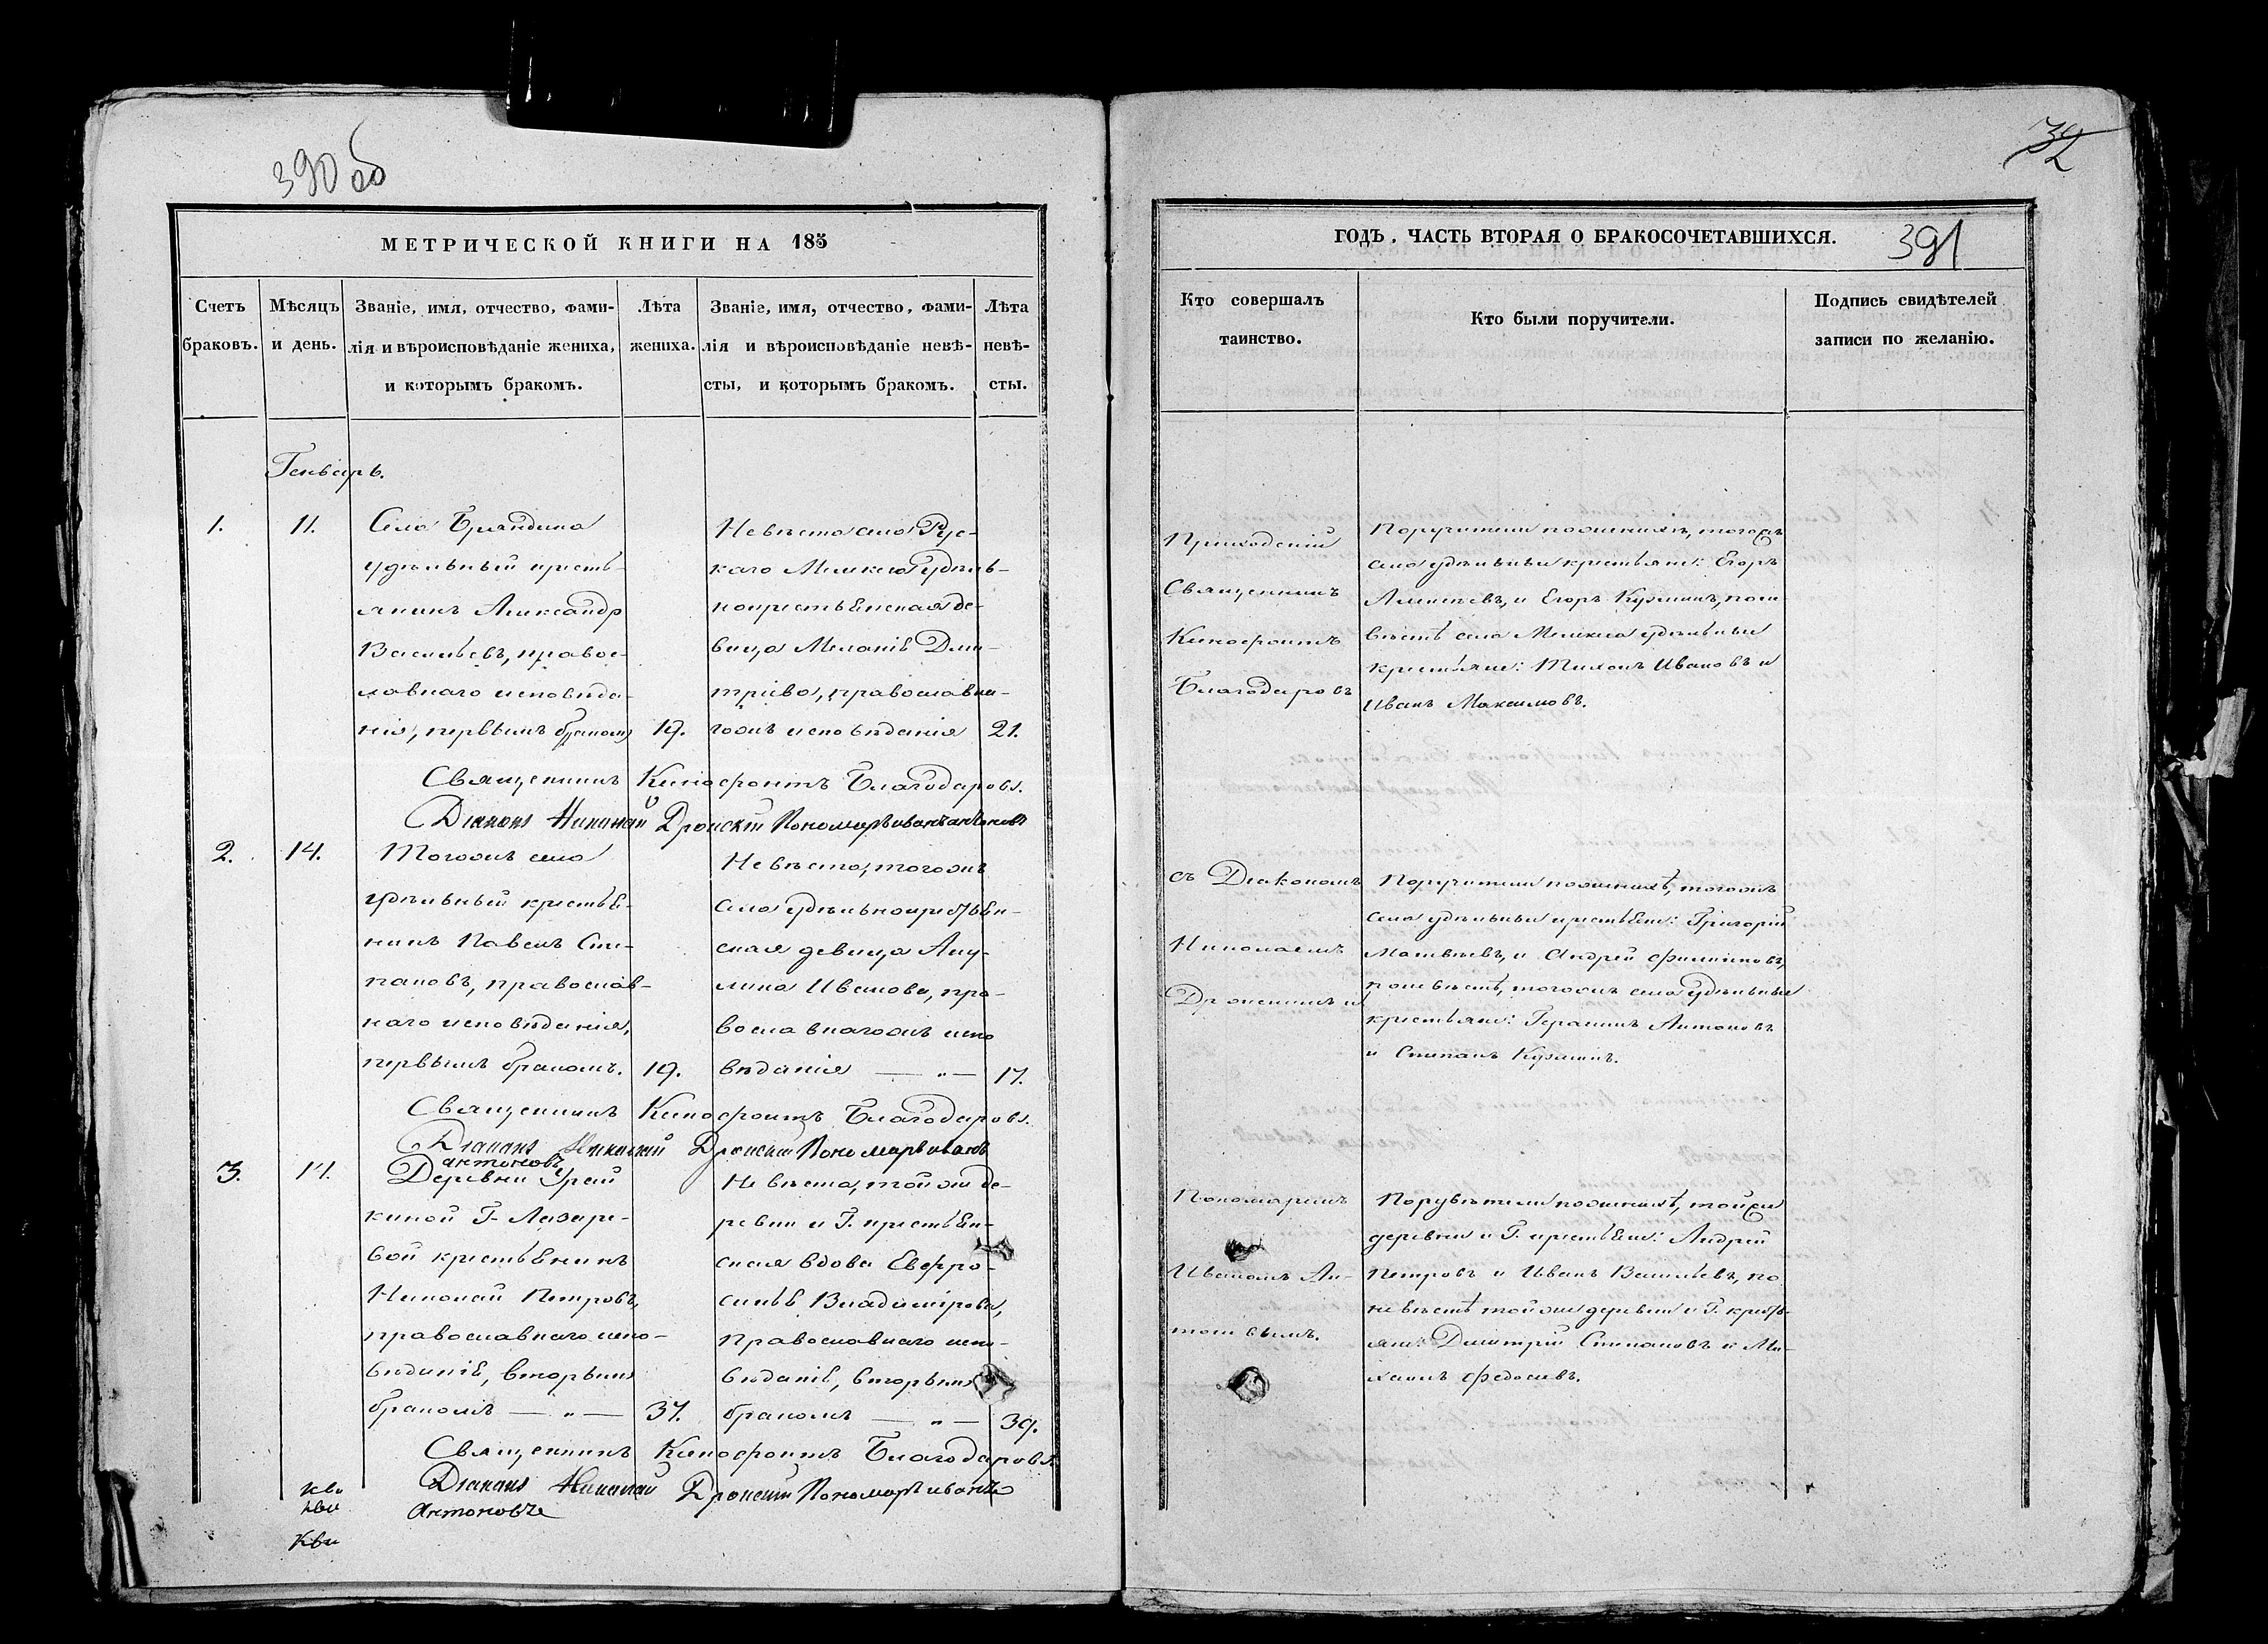 390 об
МЕТРИЧЕСКОЙ КНИГИ НА 185
Счетъ браковъ.
Мѣсяцъ и день.
Званіе, имя, отчество, фами-
лія и вѣроисповѣданіе жениха,
и которымъ бракомъ.
Лѣта жениха.
Званіе, имя, отчество, фами-
лія и вѣроисповѣданіе невѣ-
сты, и которымъ бракомъ.
Лѣта невѣ-
сты.
Генварь.
1.
11.
Села Бряндина
удѣльный кресть-
янинъ Александр
Васильевъ, правос-
лавнаго исповѣда-
нія, первымъ бракомъ
19.
Невѣста села Рус-
каго Мелекеса удѣль-
нокрестьянская де-
вица Меланія Дми-
тріева, православна-
гожъ исповѣданія
21.
Священникъ Ксенофонтъ Благодаровъ.
Діаконъ Николай Дронскій Пономарь иванъ антоновъ
2.
14.
Тогожъ села
удѣльный крестья-
нинъ Павелъ Сте-
пановъ, православ-
наго исповѣданія,
первымъ бракомъ.
19.
Невѣста, тогожъ
села удѣльнокрестьян-
ская девица Аку-
лина Иванова, пра-
вославнагожъ испо
вѣданія — „ —
17.
Священникъ Ксенофонтъ Благодаровъ.
Діаконъ Николай Дронскій Пономарь иванъ
антоновъ
3.
14.
Деревни Урай
киной Г. Лазаре-
вой крестьянинъ
Николай Петровъ,
православнаго испо-
вѣданія, вторымъ
бракомъ — „ —
37.
Невѣста, тойже де-
ревни и Г. крестьян-
ская вдова Евфро-
синья Владимірова,
православнаго испо-
вѣданія, вторымъ
бракомъ — „ —
39.
Священникъ Ксенофонтъ Благодаровъ.
Діаконъ Николай Дронскій Пономарь иванъ
Антоновъ
32
ГОДЪ. ЧАСТЬ ВТОРАЯ О БРАКОСОЧЕТАВШИХСЯ.
391
Кто совершалъ
таинство.
Кто были поручители.
Подпись свидѣтелей
записи по желанію.
Приходскій
Священникъ
Ксенофонтъ
Благодаровъ
Поручители по женихѣ, тогожъ
села удѣльные крестьяне: Егоръ
Алексѣевъ, и Егоръ Кузминъ, поне
вѣстѣ села Мелекеса удѣльные
крестьяне: Тихонъ Ивановъ и
Иванъ Максимовъ.
съ Діакономъ
Николаемъ
Дронскимъ и
Поручители по женихѣ, тогожъ
села удѣльные крестьяне: Григорій
Матвѣевъ, и Андрей Филиповъ,
поневѣстѣ, тогожъ села удѣльные
крестьяне: Герасимъ Антоновъ
и Степанъ Кузминъ.
Пономаремъ
Иваномъ Ан-
тоновымъ.
Поручители по женихѣ, тойже
деревни и Г. крестьяне: Андрей
Петровъ и Иванъ Васильевъ, по
невѣстѣ тойже деревни и Г. кресть-
яне: Димитрій Степановъ и Ми-
хаилъ Федосѣевъ.